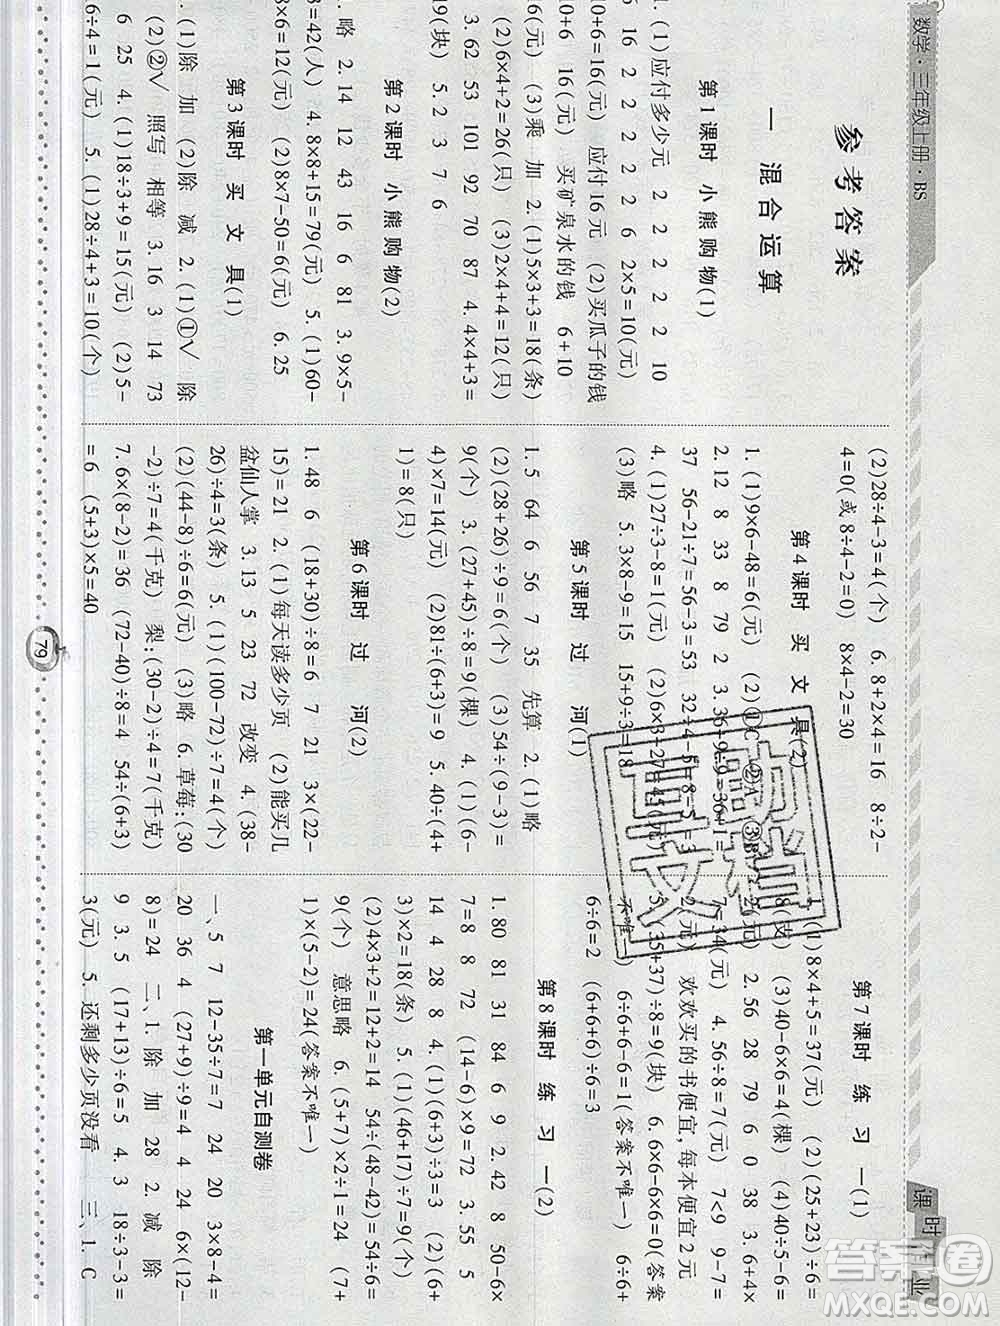 数学·三年级上册·BS
课时作业
参考答案
一 混合运算
第1课时 小熊购物(1)
1. (1)应付多少元 2 2 2 2 10
6 16 2 2 2 6 2×5=10(元)
10+6=16(元) 应付16元 (2)买瓜子的钱
10+6 16(元) 买矿泉水的钱 6+10
16(元) (3)乘 加 2. (1)5×3+3=18(条)
(2)6×4+2=26(只) (3)2×4+4=12(只)
3. 62 53 101 92 70 87 4. 4×4+3=
19(块) 5. 2 3 7 6
第2课时 小熊购物(2)
1. 略 2. 14 12 43 16 6 81 3. 9×5-
3=42(人) 4. 8×8+15=79(元) 5. (1)60-
8×6=12(元) (2)8×7-50=6(元) 6. 25
第3课时 买文具(1)
1. (1)除 加 (2)除 减 2. (1)①√ 除
(2)②√ 照写 相等 3. 16 3 14 73
6 25 4. (1)18÷3+9=15(元) (2)5-
6÷4=1(元) 5. (1)28÷4+3=10(个)
(2)28÷4-3=4(个) 6. 8+2×4=16 8÷2-
4=0(或8÷4-2=0) 8×4-2=30
第4课时 买文具(2)
1. (1)9×6-48=6(元) (2)①C ②A ③B
2. 12 8 33 8 79 2 3. 36÷9 9=36+1=
37 56-21÷7=56-3=53 32÷4-5=8-5=3
4. (1)27÷3-8=1(元) (2)6×3+27=45(元)
(3)略 5. 3×8-9=15 15+9÷3=18
第5课时 过河(1)
1. 5 64 6 56 7 35 先算 2. (1)略
(2)(28+26)÷9=6(个) (3)54÷(9-3)=
9(个) 3. (27+45)÷8=9(棵) 4. (1)(6-
4)×7=14(元) (2)81÷(6+3)=9 5. 40÷(4+
1)=8(只)
第6课时 过河(2)
1. 48 6 (18+30)÷8=6 7 21 3×(22-
15)=21 2. (1)每天读多少页 (2)能买几
盆仙人掌 3. 13 5 23 72 改变 4. (38-
26)÷4=3(条) 5. (1)(100-72)÷7=4(个)
(2)(44-8)÷6=6(元) (3)略 6. 草莓:(30
-2)÷7=4(千克) 梨:(30-2)÷4=7(千克)
7. 6×(8-2)=36 (72-40)÷8=4 54÷(6+3)
=6 (5+3)×5=40
第7课时 练习一(1)
(1)8×4+5=37(元) (2)(25+23)÷6=
8(支) (3)40-6×6=4(棵) (4)40÷5-
(元) 2. 56 28 79 6 0 38 3. 6+4×
7=34(元) 4. 56÷8=7(元) 7<9 9-7=
2(元) 欢欢买的书便宜,每本便宜2元
5. (35+37)÷8=9(块) 6. 6×6×6=0(答案
不唯一) 6÷6+6-6=1(答案不唯一) 6÷6+
6÷6=2 (6+6+6)÷6=3
第8课时 练习一(2)
1. 80 81 31 84 6 9 2. 42 8 50-6×
7=8 8 72 (14-6)×9=72 3. 55 5
14 4 28 8 4. (1)(6+3)÷3=3 (2)(6+
3)×2=18(条) 5. (1)(46+17)÷7=9(个)
(2)4×3+2=54÷(48-42)=54÷6=
9(个) 意思略 6. (5+7)×2÷1=24 (7+
1)×(5-2)=24(答案不唯一)
第一单元自测卷
一、5 7 12-35÷7=7 24 20 3×8-4=
20 36 4 (27+9)÷9=4 4 24 6×(12-
8)=24 二、1. 除 加 28 2. 减 除
9 3. 5 (17+13)÷6=5 4. 3 18÷3-3=
3(元) 5. 还剩多少页没看 三、1. C
79
答案圈
MXQE.COM